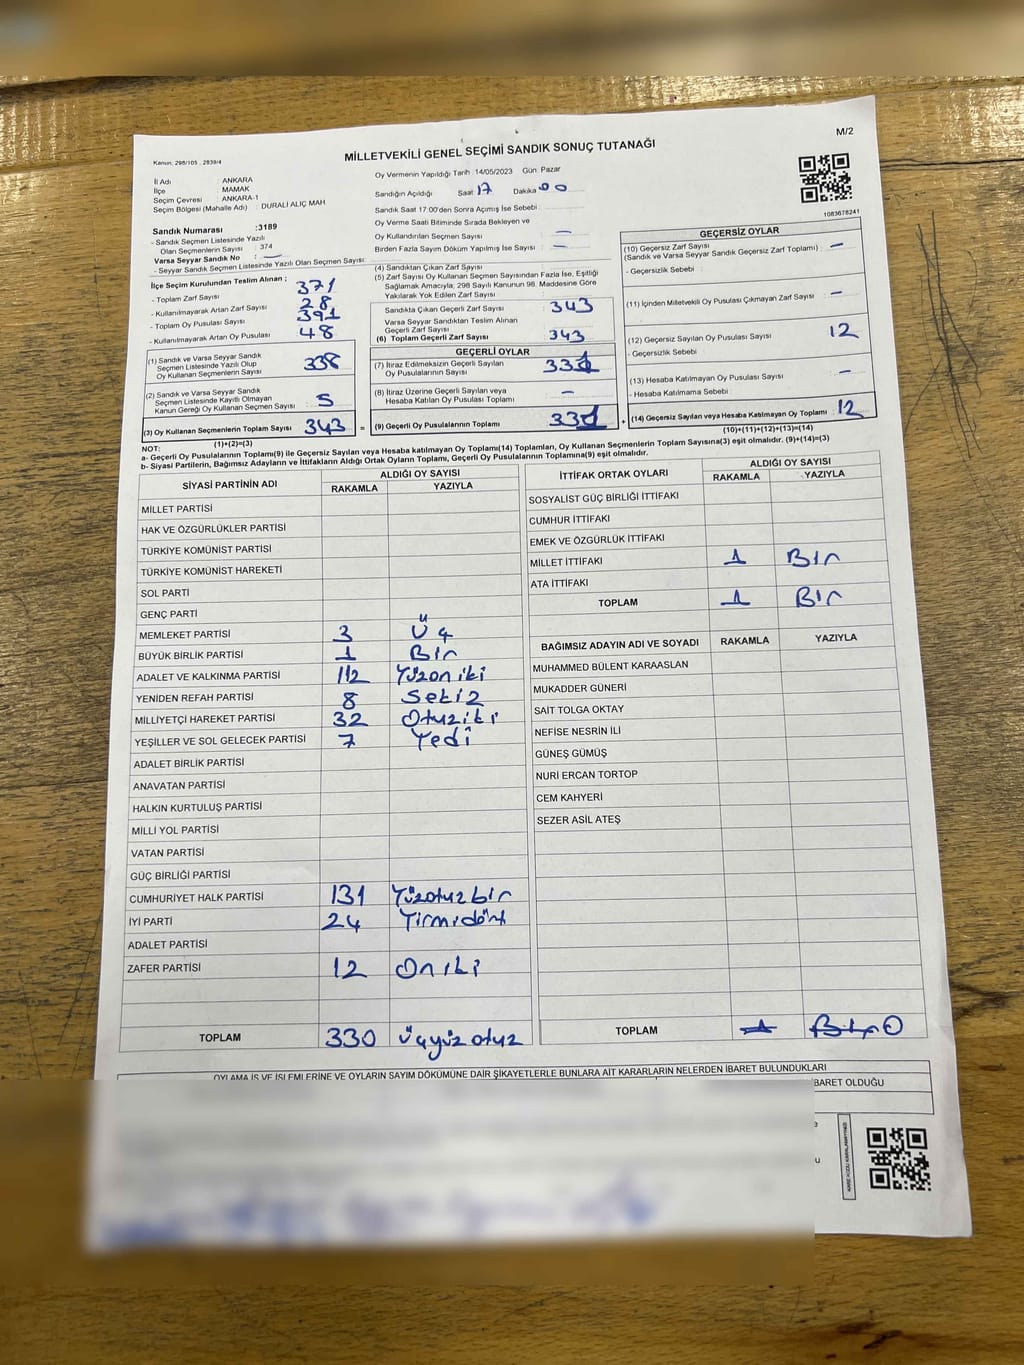 M/2
Kanun: 298/105 , 2839/4
MİLLETVEKİLİ GENEL SEÇİMİ SANDIK SONUÇ TUTANAĞI
İl Adı : ANKARA
İlçe : MAMAK
Seçim Çevresi : ANKARA-1
Seçim Bölgesi (Mahalle Adı) : DURALİ ALIÇ MAH
Sandık Numarası : 3189
- Sandık Seçmen Listesinde Yazılı
Olan Seçmenlerin Sayısı : 374
Varsa Seyyar Sandık No : —
- Seyyar Sandık Seçmen Listesinde Yazılı Olan Seçmen Sayısı :
İlçe Seçim Kurulundan Teslim Alınan ;
- Toplam Zarf Sayısı 371
- Kullanılmayarak Artan Zarf Sayısı 28
- Toplam Oy Pusulası Sayısı 391
- Kullanılmayarak Artan Oy Pusulası 48
(1) Sandık ve Varsa Seyyar Sandık
Seçmen Listesinde Yazılı Olup
Oy Kullanan Seçmenlerin Sayısı 338
(2) Sandık ve Varsa Seyyar Sandık
Seçmen Listesinde Kayıtlı Olmayan
Kanun Gereği Oy Kullanan Seçmen Sayısı 5
(3) Oy Kullanan Seçmenlerin Toplam Sayısı 343
(1)+(2)=(3)
Oy Vermenin Yapıldığı Tarih : 14/05/2023 Gün : Pazar
Sandığın Açıldığı Saat : 17 Dakika : 00
Sandık Saat 17:00'den Sonra Açımış İse Sebebi :
Oy Verme Saati Bitiminde Sırada Bekleyen ve
Oy Kullandırılan Seçmen Sayısı : —
Birden Fazla Sayım Döküm Yapılmış İse Sayısı : —
(4) Sandıktan Çıkan Zarf Sayısı
(5) Zarf Sayısı Oy Kullanan Seçmen Sayısından Fazla İse, Eşitliği
Sağlamak Amacıyla, 298 Sayılı Kanunun 98. Maddesine Göre
Yakılarak Yok Edilen Zarf Sayısı :
Sandıkta Çıkan Geçerli Zarf Sayısı : 343
Varsa Seyyar Sandıktan Teslim Alınan
Geçerli Zarf Sayısı :
(6) Toplam Geçerli Zarf Sayısı : 343
GEÇERLİ OYLAR
(7) İtiraz Edilmeksizin Geçerli Sayılan
Oy Pusulalarının Sayısı : 331
(8) İtiraz Üzerine Geçerli Sayılan veya
Hesaba Katılan Oy Pusulası Toplamı : —
= (9) Geçerli Oy Pusulalarının Toplamı : 331 +
1083678241
GEÇERSİZ OYLAR
(10) Geçersiz Zarf Sayısı : —
(Sandık ve Varsa Seyyar Sandık Geçersiz Zarf Toplamı)
- Geçersizlik Sebebi :
(11) İçinden Milletvekili Oy Pusulası Çıkmayan Zarf Sayısı : —
(12) Geçersiz Sayılan Oy Pusulası Sayısı : 12
- Geçersizlik Sebebi :
(13) Hesaba Katılmayan Oy Pusulası Sayısı : —
- Hesaba Katılmama Sebebi :
(14) Geçersiz Sayılan veya Hesaba Katılmayan Oy Toplamı : 12
(10)+(11)+(12)+(13)=(14)
NOT:
a- Geçerli Oy Pusulalarının Toplamı(9) ile Geçersiz Sayılan veya Hesaba katılmayan Oy Toplamı(14) Toplamları, Oy Kullanan Seçmenlerin Toplam Sayısına(3) eşit olmalıdır. (9)+(14)=(3)
b- Siyasi Partilerin, Bağımsız Adayların ve İttifakların Aldığı Ortak Oyların Toplamı, Geçerli Oy Pusulalarının Toplamına(9) eşit olmalıdır.
SİYASİ PARTİNİN ADI ALDIĞI OY SAYISI
RAKAMLA YAZIYLA
MİLLET PARTİSİ
HAK VE ÖZGÜRLÜKLER PARTİSİ
TÜRKİYE KOMÜNİST PARTİSİ
TÜRKİYE KOMÜNİST HAREKETİ
SOL PARTİ
GENÇ PARTİ
MEMLEKET PARTİSİ 3 Üç
BÜYÜK BİRLİK PARTİSİ 1 Bir
ADALET VE KALKINMA PARTİSİ 112 Yüzoniki
YENİDEN REFAH PARTİSİ 8 Sekiz
MİLLİYETÇİ HAREKET PARTİSİ 32 Otuziki
YEŞİLLER VE SOL GELECEK PARTİSİ 7 Yedi
ADALET BİRLİK PARTİSİ
ANAVATAN PARTİSİ
HALKIN KURTULUŞ PARTİSİ
MİLLİ YOL PARTİSİ
VATAN PARTİSİ
GÜÇ BİRLİĞİ PARTİSİ
CUMHURİYET HALK PARTİSİ 131 Yüzotuzbir
İYİ PARTİ 24 Yirmidört
ADALET PARTİSİ
ZAFER PARTİSİ 12 Oniki
TOPLAM 330 Üçyüz otuz
İTTİFAK ORTAK OYLARI ALDIĞI OY SAYISI
RAKAMLA YAZIYLA
SOSYALİST GÜÇ BİRLİĞİ İTTİFAKI
CUMHUR İTTİFAKI
EMEK VE ÖZGÜRLÜK İTTİFAKI
MİLLET İTTİFAKI 1 Bir
ATA İTTİFAKI
TOPLAM 1 Bir
BAĞIMSIZ ADAYIN ADI VE SOYADI RAKAMLA YAZIYLA
MUHAMMED BÜLENT KARAASLAN
MUKADDER GÜNERİ
SAİT TOLGA OKTAY
NEFİSE NESRİN İLİ
GÜNEŞ GÜMÜŞ
NURİ ERCAN TORTOP
CEM KAHYERİ
SEZER ASİL ATEŞ
TOPLAM 1 Bir 0
OYLAMA İŞ VE İŞLEMLERİNE VE OYLARIN SAYIM DÖKÜMÜNE DAİR ŞİKAYETLERLE BUNLARA AİT KARARLARIN NELERDEN İBARET BULUNDUKLARI
İBARET OLDUĞU